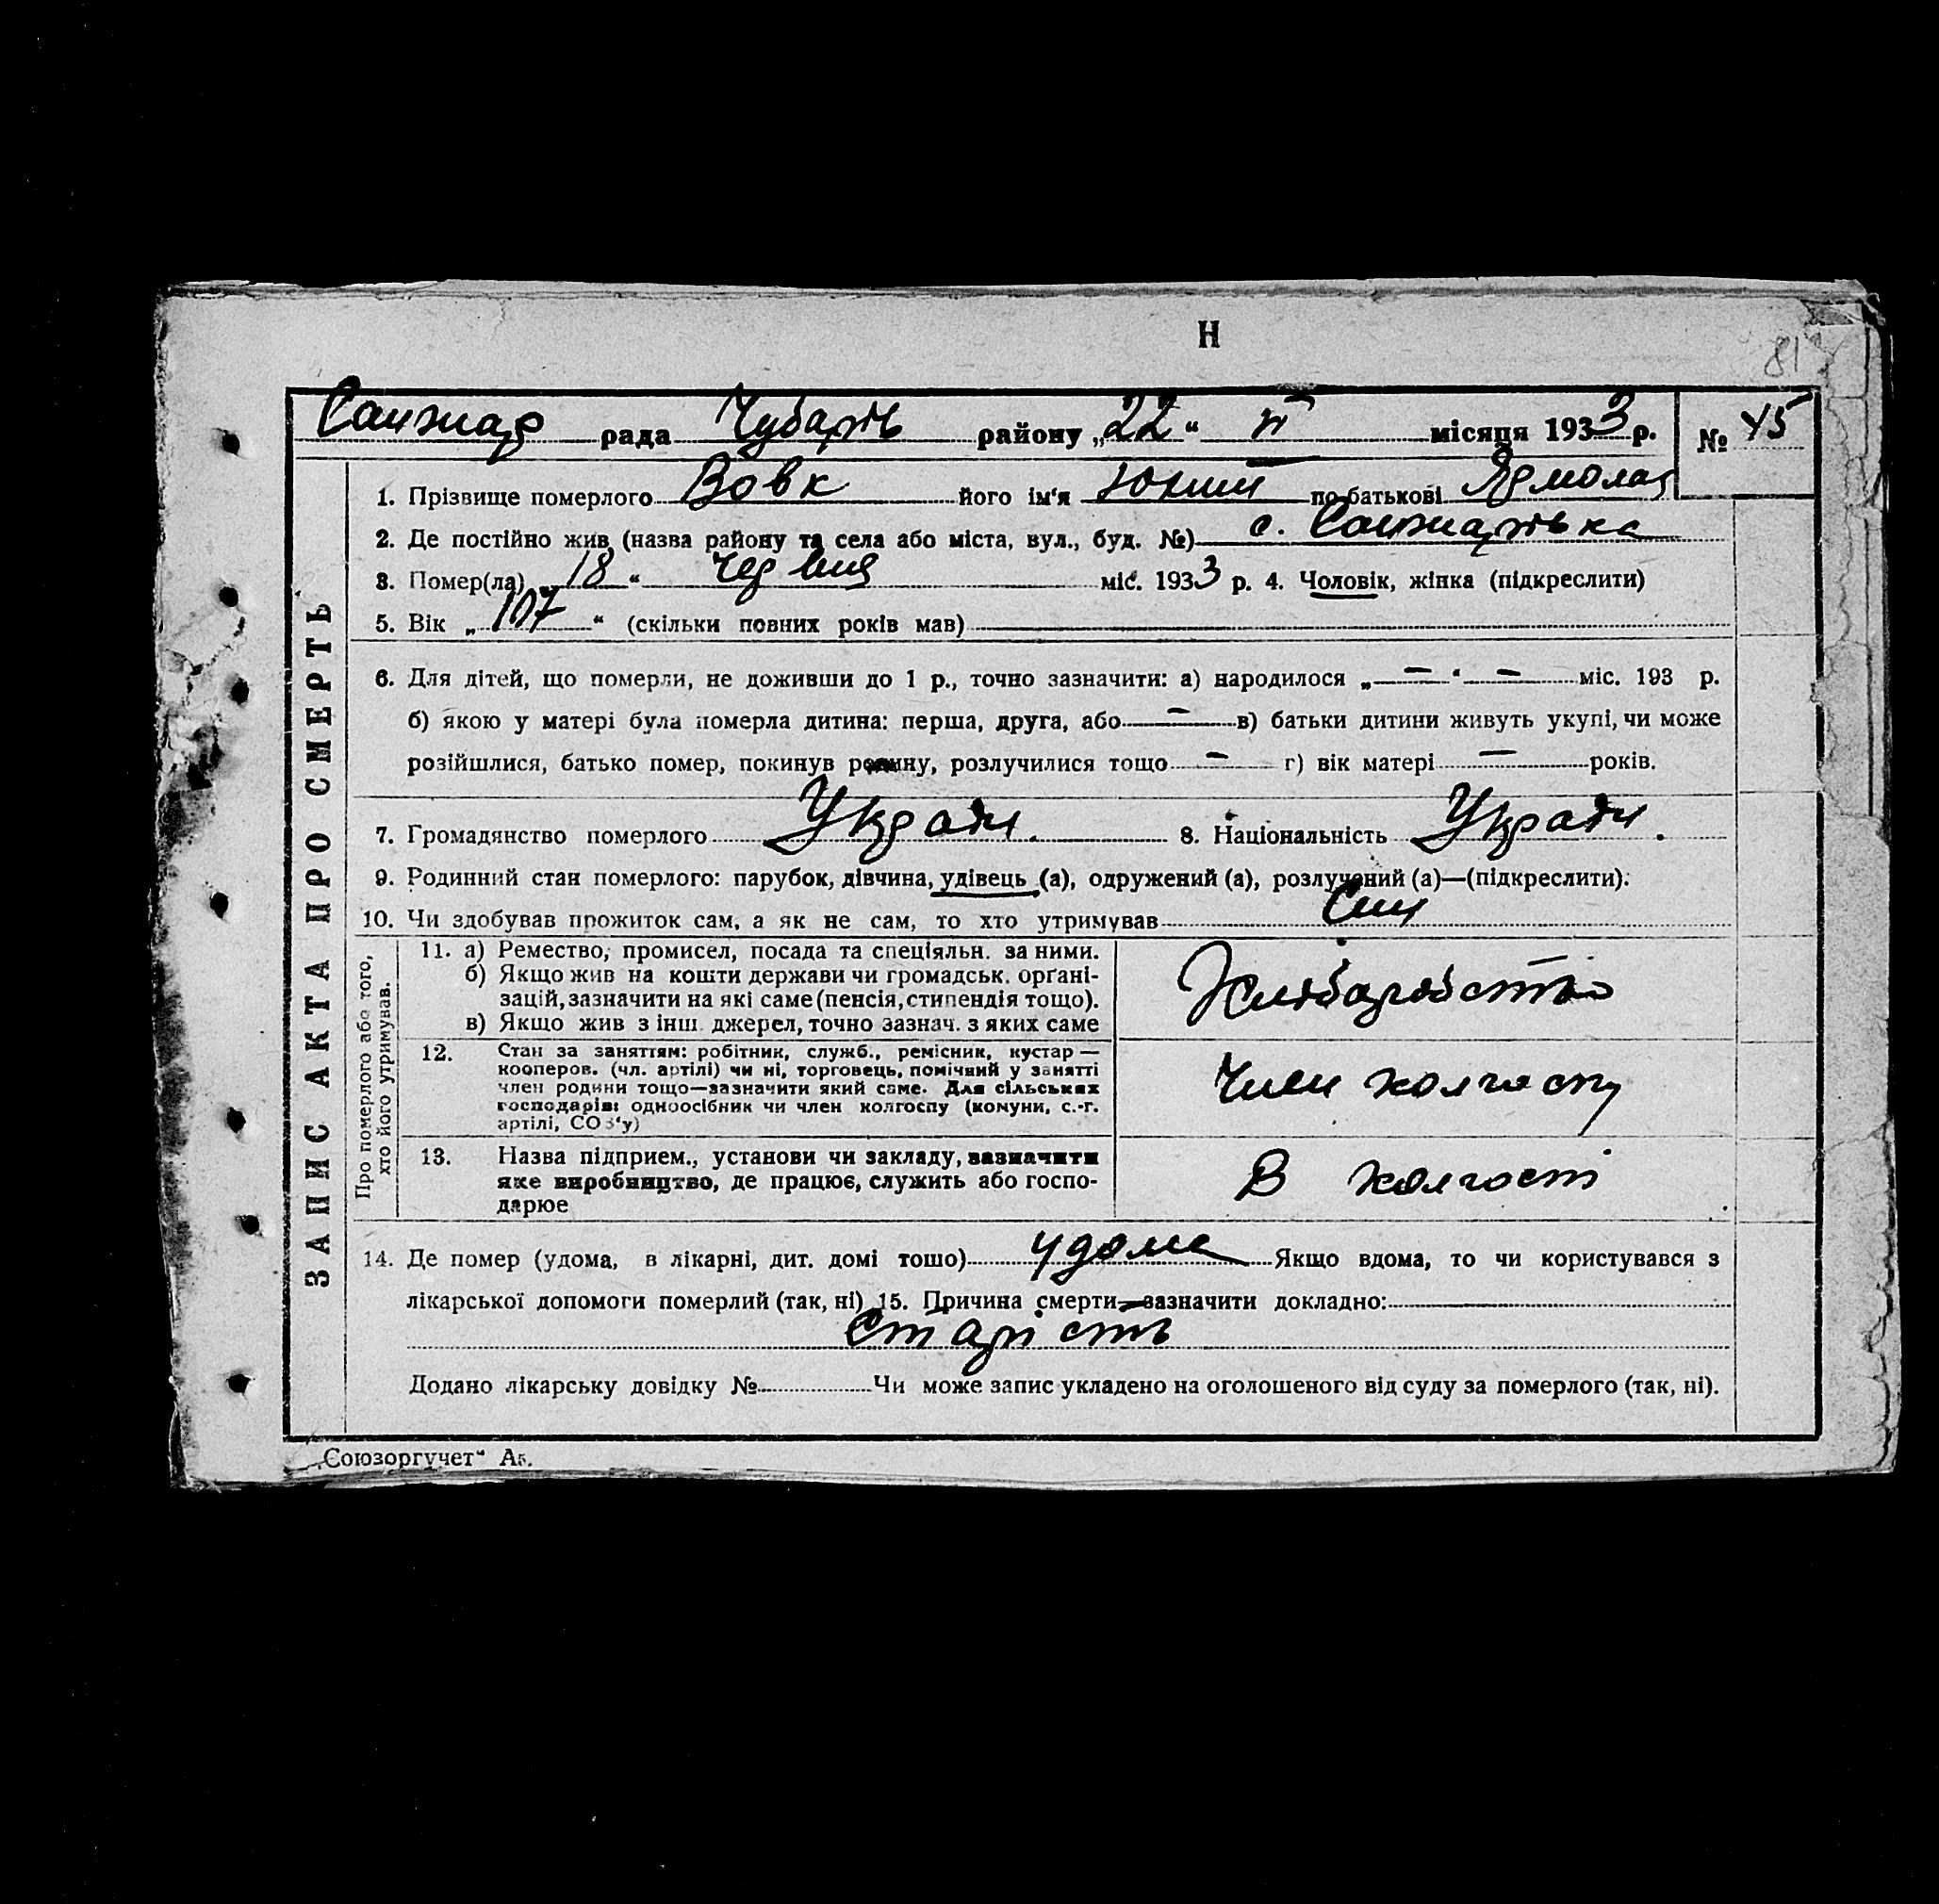 Н
81
Санжар рада Чубарів району „22“ VI місяця 1933 р. № 45
ЗАПИС АКТА ПРО СМЕРТЬ
1. Прізвище померлого Вовк його ім'я Юхим по батькові Ярмолая
2. Де постійно жив (назва району та села або міста, вул., буд. №) с. Санжарівка
3. Помер(ла) 18 “ Червня міс. 1933 р. 4. Чоловік, жінка (підкреслити)
5. Вік „107“ (скільки повних років мав)
6. Для дітей, що померли, не доживши до 1 р., точно зазначити: а) народилося „—“ — міс. 193 р.
б) якою у матері була померла дитина: перша, друга, або — в) батьки дитини живуть укупі, чи може
розійшлися, батько помер, покинув родину, розлучилися тощо — г) вік матері — років.
7. Громадянство померлого Україн. 8. Національність Україн.
9. Родинний стан померлого: парубок, дівчина, удівець (а), одружений (а), розлучений (а)—(підкреслити).
10. Чи здобував прожиток сам, а як не сам, то хто утримував Син
Про померлого або того,
хто його утримував.
11. а) Ремество, промисел, посада та спеціяльн. за ними.
б) Якщо жив на кошти держави чи громадськ. орґані-
зацій, зазначити на які саме (пенсія, стипендія тощо).
в) Якщо жив з інш. джерел, точно зазнач. з яких саме
Хліборобство
12. Стан за заняттям: робітник, служб., ремісник, кустар —
кооперов. (чл. артілі) чи ні, торговець, помічний у занятті
член родини тощо—зазначити який саме. Для сільських
господарів: одноосібник чи член колгоспу (комуни, с.-г.
артілі, СОЗ'у)
Член колгоспу
13. Назва підприєм., установи чи закладу, зазначити
яке виробництво, де працює, служить або госпо-
дарює
В колгоспі
14. Де помер (удома, в лікарні, дит. домі тошо) удома Якщо вдома, то чи користувався з
лікарської допомоги померлий (так, ні) 15. Причина смерти—зазначити докладно:
Старість
Додано лікарську довідку № Чи може запис укладено на оголошеного від суду за померлого (так, ні).
„Союзоргучет“